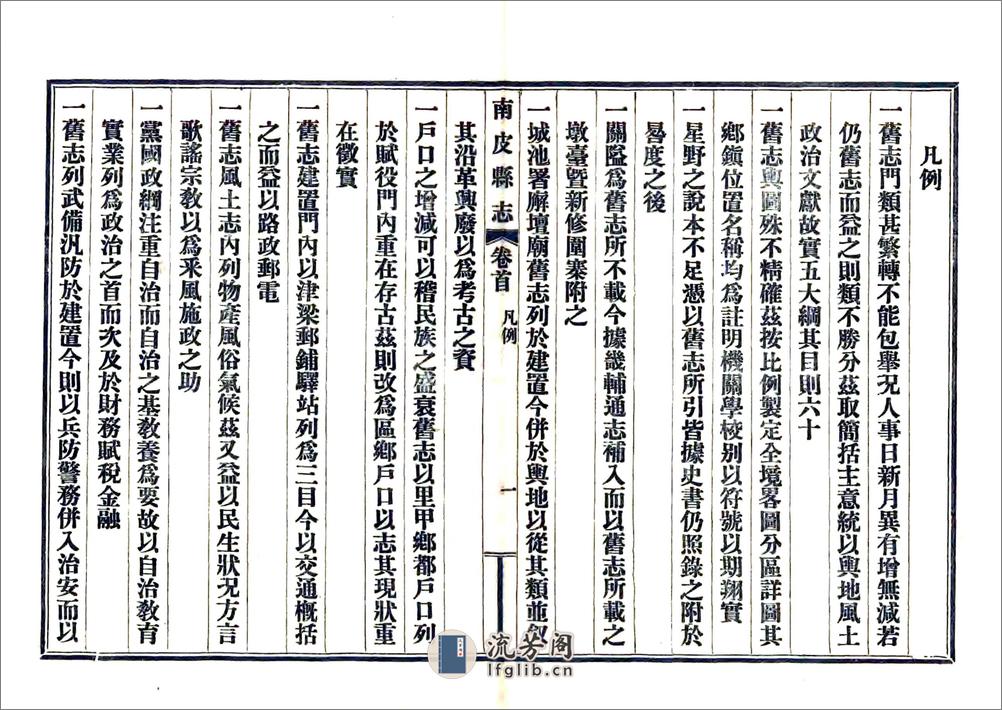 凡例
一舊志門類甚繁轉不能包舉况人事日新月異有增無減若
仍舊志而益之則類不勝分茲取簡括主意統以輿地風土
政治文獻故實五大綱其目則六十
一舊志輿圖殊不精確茲按比例製定全境畧圖分區詳圖其
鄉鎮位置名稱均爲註明機關學校别以符號以期翔實
一星野之說本不足憑以舊志所引皆據史書仍照錄之附於
晷度之後
一關隘爲舊志所不載今據畿輔通志補入而以舊志所載之
墩臺曁新修圍寨附之
一城池署廨壇廟舊志列於建置今併於輿地以從其類並叙
其沿革興廢以爲考古之資
南皮縣志 卷首 凡例 一
一戶口之增減可以稽民族之盛衰舊志以里甲鄉都戶口列
於賦役門內重在存古茲則改爲區鄉戶口以志其現狀重
在徵實
一舊志建置門內以津梁郵鋪驛站列爲三目今以交通概括
之而益以路政郵電
一舊志風土志內列物產風俗氣候茲又益以民生狀况方言
歌謠宗教以爲采風施政之助
一黨國政綱注重自治而自治之基教養爲要故以自治教育
實業列爲政治之首而次及於財務賦稅金融
一舊志列武備汎防於建置今則以兵防警務併入治安而以
流芳阁
lfglib.cn